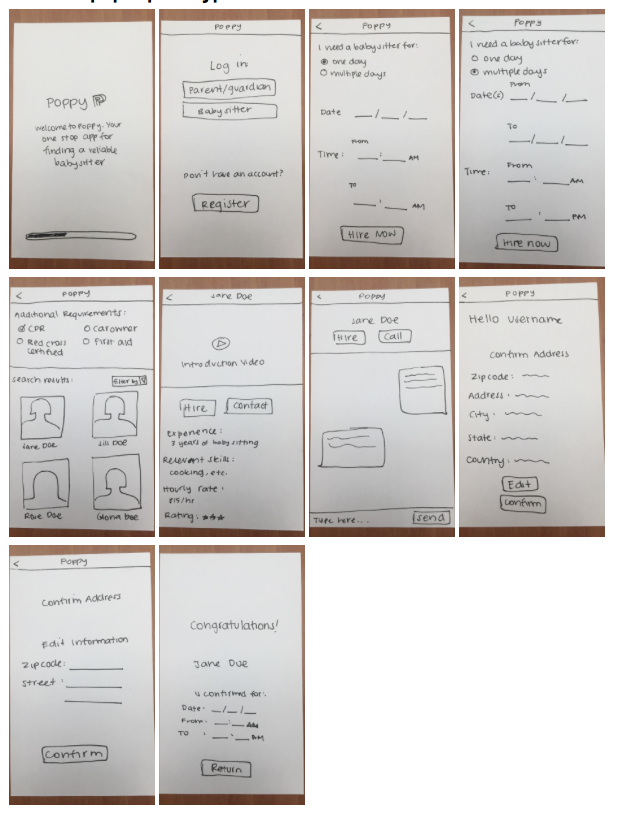 Poppy
welcome to Poppy. Your
one stop app for
finding a reliable
babysitter
Poppy
Log in
Parent/guardian
Babysitter
Don't have an account?
Register
<
Poppy
I need a babysitter for:
one day
multiple days
Date __/__/__
From
Time: __:__ AM
TO
__:__ AM
Hire Now
<
Poppy
I need a babysitter for:
one day
multiple days
From
Date(s) __/__/__
TO
__/__/__
From
Time: __:__ AM
TO
__:__ PM
Hire now
<
Poppy
Additional Requirements:
CPR
Car owner
Red cross
certified
First aid
search results:
filter by
Jane Doe
Jill Doe
Rose Doe
Gloria Doe
<
Jane Doe
Introduction Video
Hire
Contact
Experience:
3 years of babysitting
Relevant skills:
cooking, etc.
Hourly rate:
$15/hr
Rating: ★★★
<
Poppy
Jane Doe
Hire
Call
Type here...
Send
<
Poppy
Hello Username
Confirm Address
Zipcode:
Address:
City:
State:
Country:
Edit
Confirm
<
Poppy
Confirm Address
Edit Information
Zipcode:
Street:
Confirm
Congratulations!
Jane Doe
is confirmed for:
Date: __/__/__
From: __:__ AM
TO : __:__ PM
Return